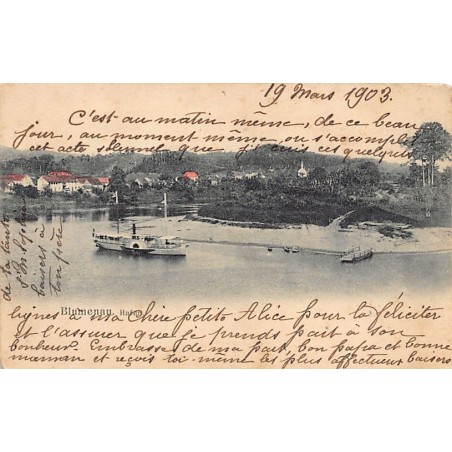 19 Mars 1903.
C'est au matin même, de ce beau
jour, au moment même, ou s'accomplit
cet acte solennel que j'ecris ces quelques
lignes à ma Chère petite Alice pour la féliciter
et l'assurer que je prends part à son
bonheur. Embrasse de ma part, bon papa et bonne
maman et reçois toi-meme les plus affectueux baisers
de ta tante
baisers à
ton père
Blumenau. Hafen